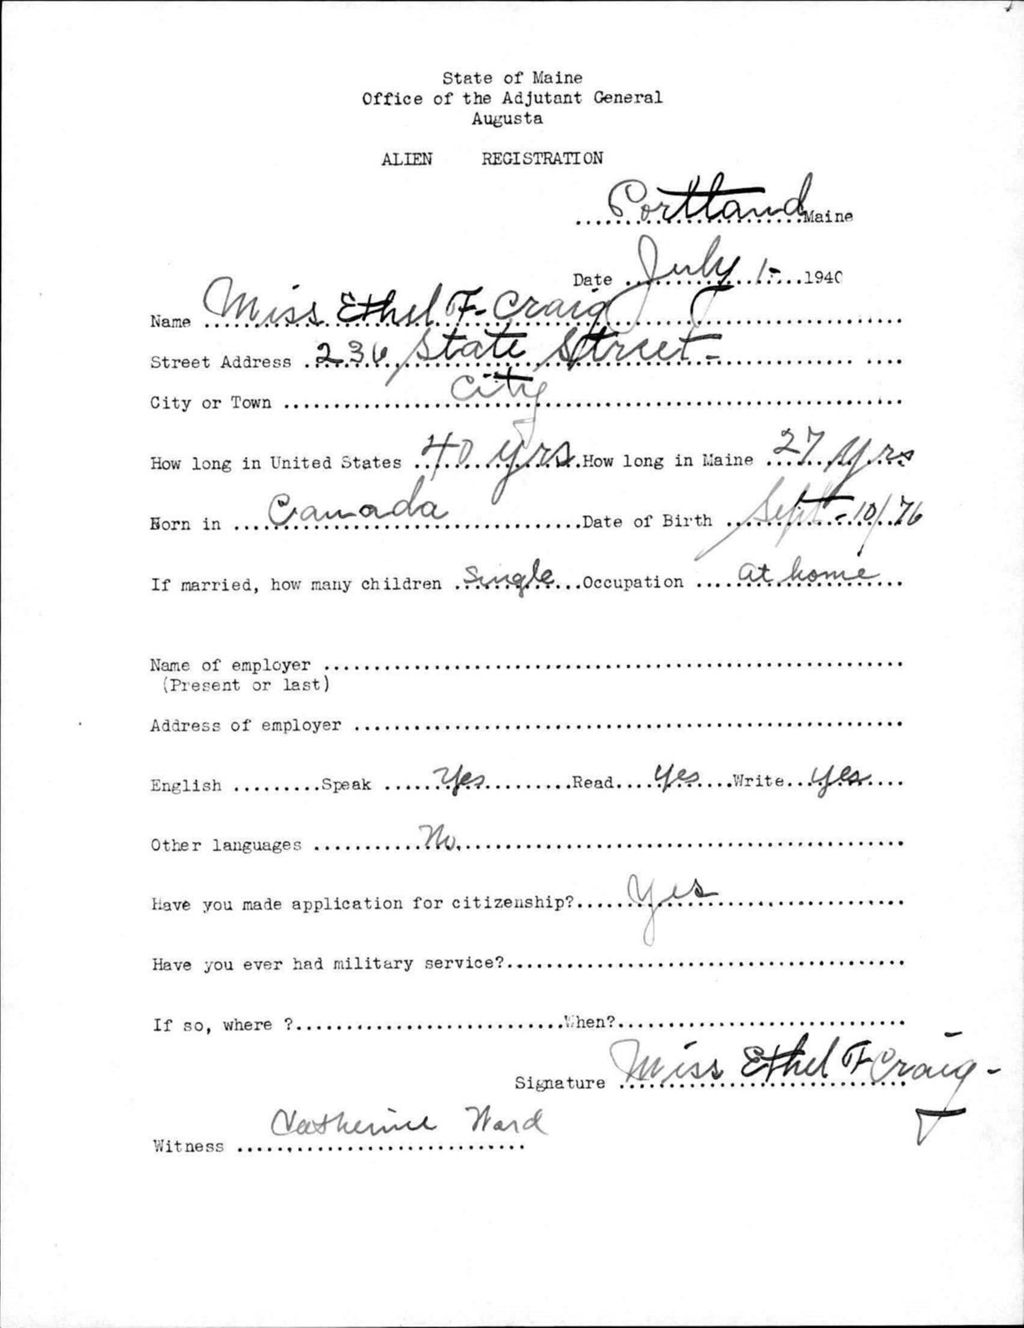 State of Maine
Office of the Adjutant General
Augusta
ALIEN REGISTRATION
Portland Maine
Date July 1- 1940
Name Miss Ethel F. Craig
Street Address 236 State Street-
City or Town City
How long in United States 40 yrs. How long in Maine 27 yrs
Born in Canada Date of Birth Sept-10/76
If married, how many children Single Occupation at home
Name of employer
(Present or last)
Address of employer
English Speak Yes Read Yes Write Yes
Other languages No.
Have you made application for citizenship? Yes
Have you ever had military service?
If so, where ? When?
Signature Miss Ethel F Craig-
Witness Catherine Ward